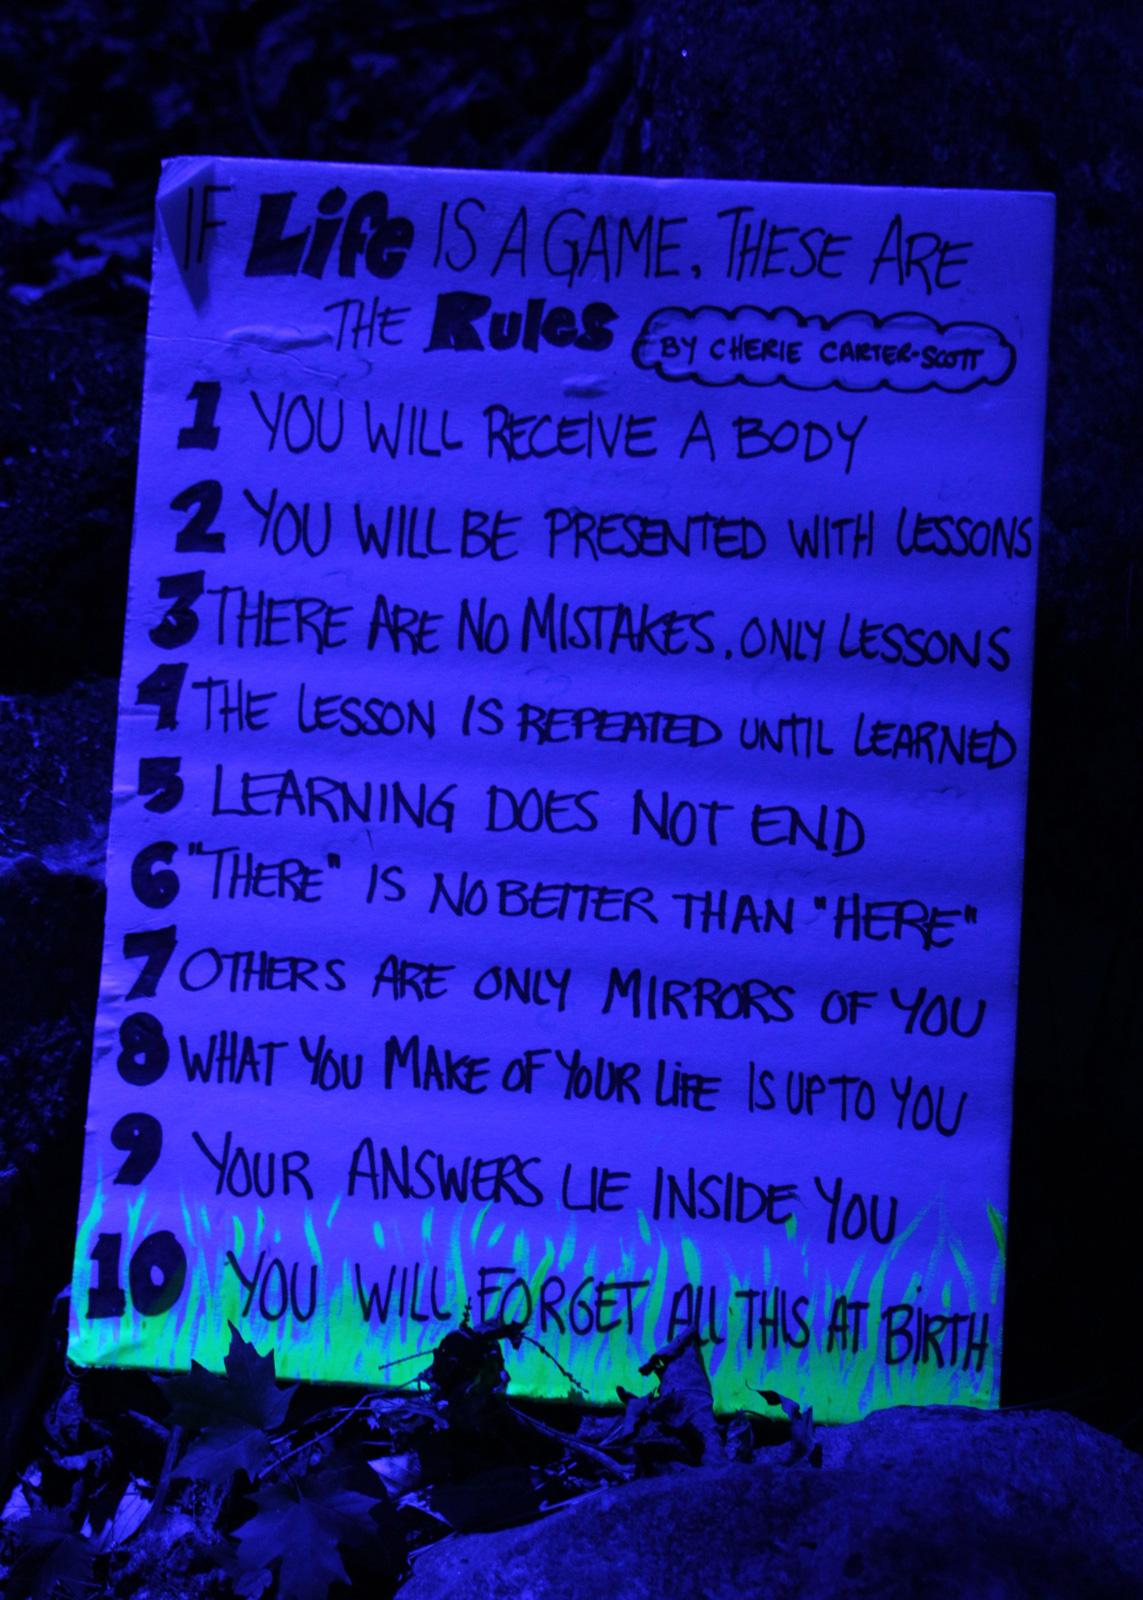 IF Life IS A GAME, THESE ARE
THE Rules BY CHERIE CARTER-SCOTT
1 YOU WILL RECEIVE A BODY
2 YOU WILL BE PRESENTED WITH LESSONS
3 THERE ARE NO MISTAKES, ONLY LESSONS
4 THE LESSON IS REPEATED UNTIL LEARNED
5 LEARNING DOES NOT END
6 "THERE" IS NO BETTER THAN "HERE"
7 OTHERS ARE ONLY MIRRORS OF YOU
8 WHAT YOU MAKE OF YOUR LIFE IS UP TO YOU
9 YOUR ANSWERS LIE INSIDE YOU
10 YOU WILL FORGET ALL THIS AT BIRTH